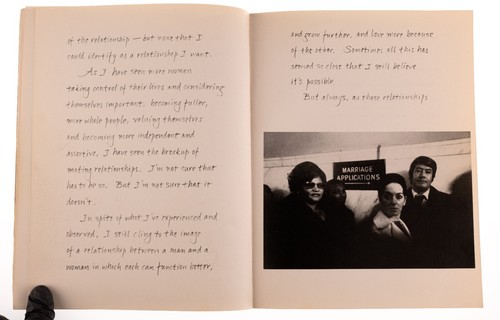 of the relationship — but none that I
could identify as a relationship I want.
As I have seen more women
taking control of their lives and considering
themselves important: becoming fuller,
more whole people, valuing themselves
and becoming more independent and
assertive, I have seen the breakup of
mating relationships. I'm not sure that
has to be so. But I'm not sure that it
doesn't.
In spite of what I've experienced and
observed, I still cling to the image
of a relationship between a man and a
woman in which each can function better,
and grow further, and love more because
of the other. Sometimes all this has
seemed so close that I still believe
it's possible.
But always, as those relationships
MARRIAGE
APPLICATIONS